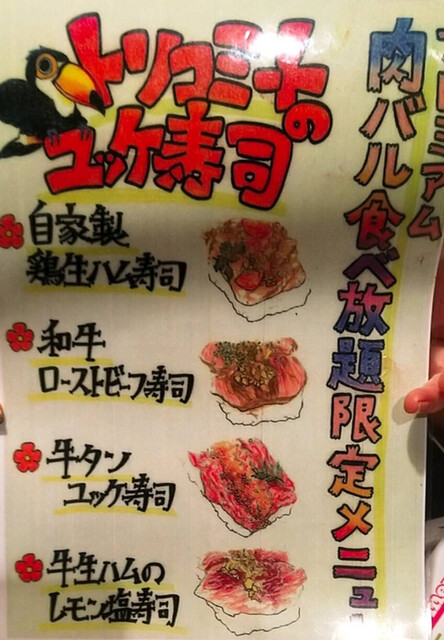 プレミアム
肉バル食べ放題限定メニュー
トリコミチの
ユッケ寿司
自家製
鶏生ハム寿司
和牛
ローストビーフ寿司
牛タン
ユッケ寿司
牛生ハムの
レモン塩寿司